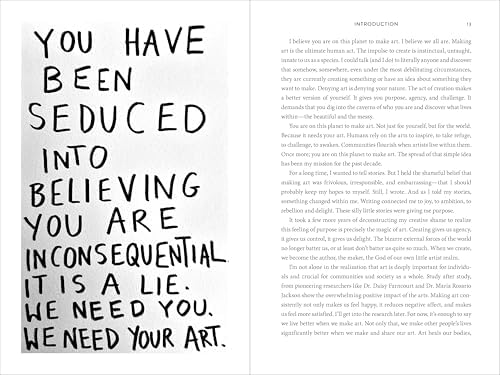 YOU HAVE
BEEN
SEDUCED
INTO
BELIEVING
YOU ARE
INCONSEQUENTIAL.
IT IS A LIE.
WE NEED YOU.
WE NEED YOUR ART.
INTRODUCTION 13
I believe you are on this planet to make art. I believe we all are. Making
art is the ultimate human act. The impulse to create is instinctual, untaught,
innate to us as a species. I could talk (and I do) to literally anyone and discover
that somehow, somewhere, even under the most debilitating circumstances,
they are currently creating something or have an idea about something they
want to make. Denying art is denying your nature. The act of creation makes
a better version of yourself. It gives you purpose, agency, and challenge. It
demands that you dig into the caverns of who you are and discover what lives
within—the beautiful and the messy.
You are on this planet to make art. Not just for yourself, but for the world.
Because it needs your art. Humans rely on the arts to inspire, to take refuge,
to challenge, to awaken. Communities flourish when artists live within them.
Once more; you are on this planet to make art. The spread of that simple idea
has been my mission for the past decade.
For a long time, I wanted to tell stories. But I held the shameful belief that
making art was frivolous, irresponsible, and embarrassing—that I should
probably keep my hopes to myself. Still, I wrote. And as I told my stories,
something changed within me. Writing connected me to joy, to ambition, to
rebellion and delight. These silly little stories were giving me purpose.
It took a few more years of deconstructing my creative shame to realize
this feeling of purpose is precisely the magic of art. Creating gives us agency,
it gives us control, it gives us delight. The bizarre external forces of the world
no longer batter us, or at least don't batter us quite so much. When we create, we
become the author, the maker, the God of our own little artist realm.
I'm not alone in the realization that art is deeply important for individu-
als and crucial for communities and society as a whole. Study after study,
from pioneering researchers like Dr. Daisy Fancourt and Dr. Maria Rosario
Jackson show the overwhelming positive impact of the arts. Making art con-
sistently not only makes us feel happy, it reduces negative affect, and makes
us feel more satisfied. I'll get into the research later. For now, it's enough to say
we live better when we make art. Not only that, we make other people's lives
significantly better when we make and share our art. Art heals our bodies,